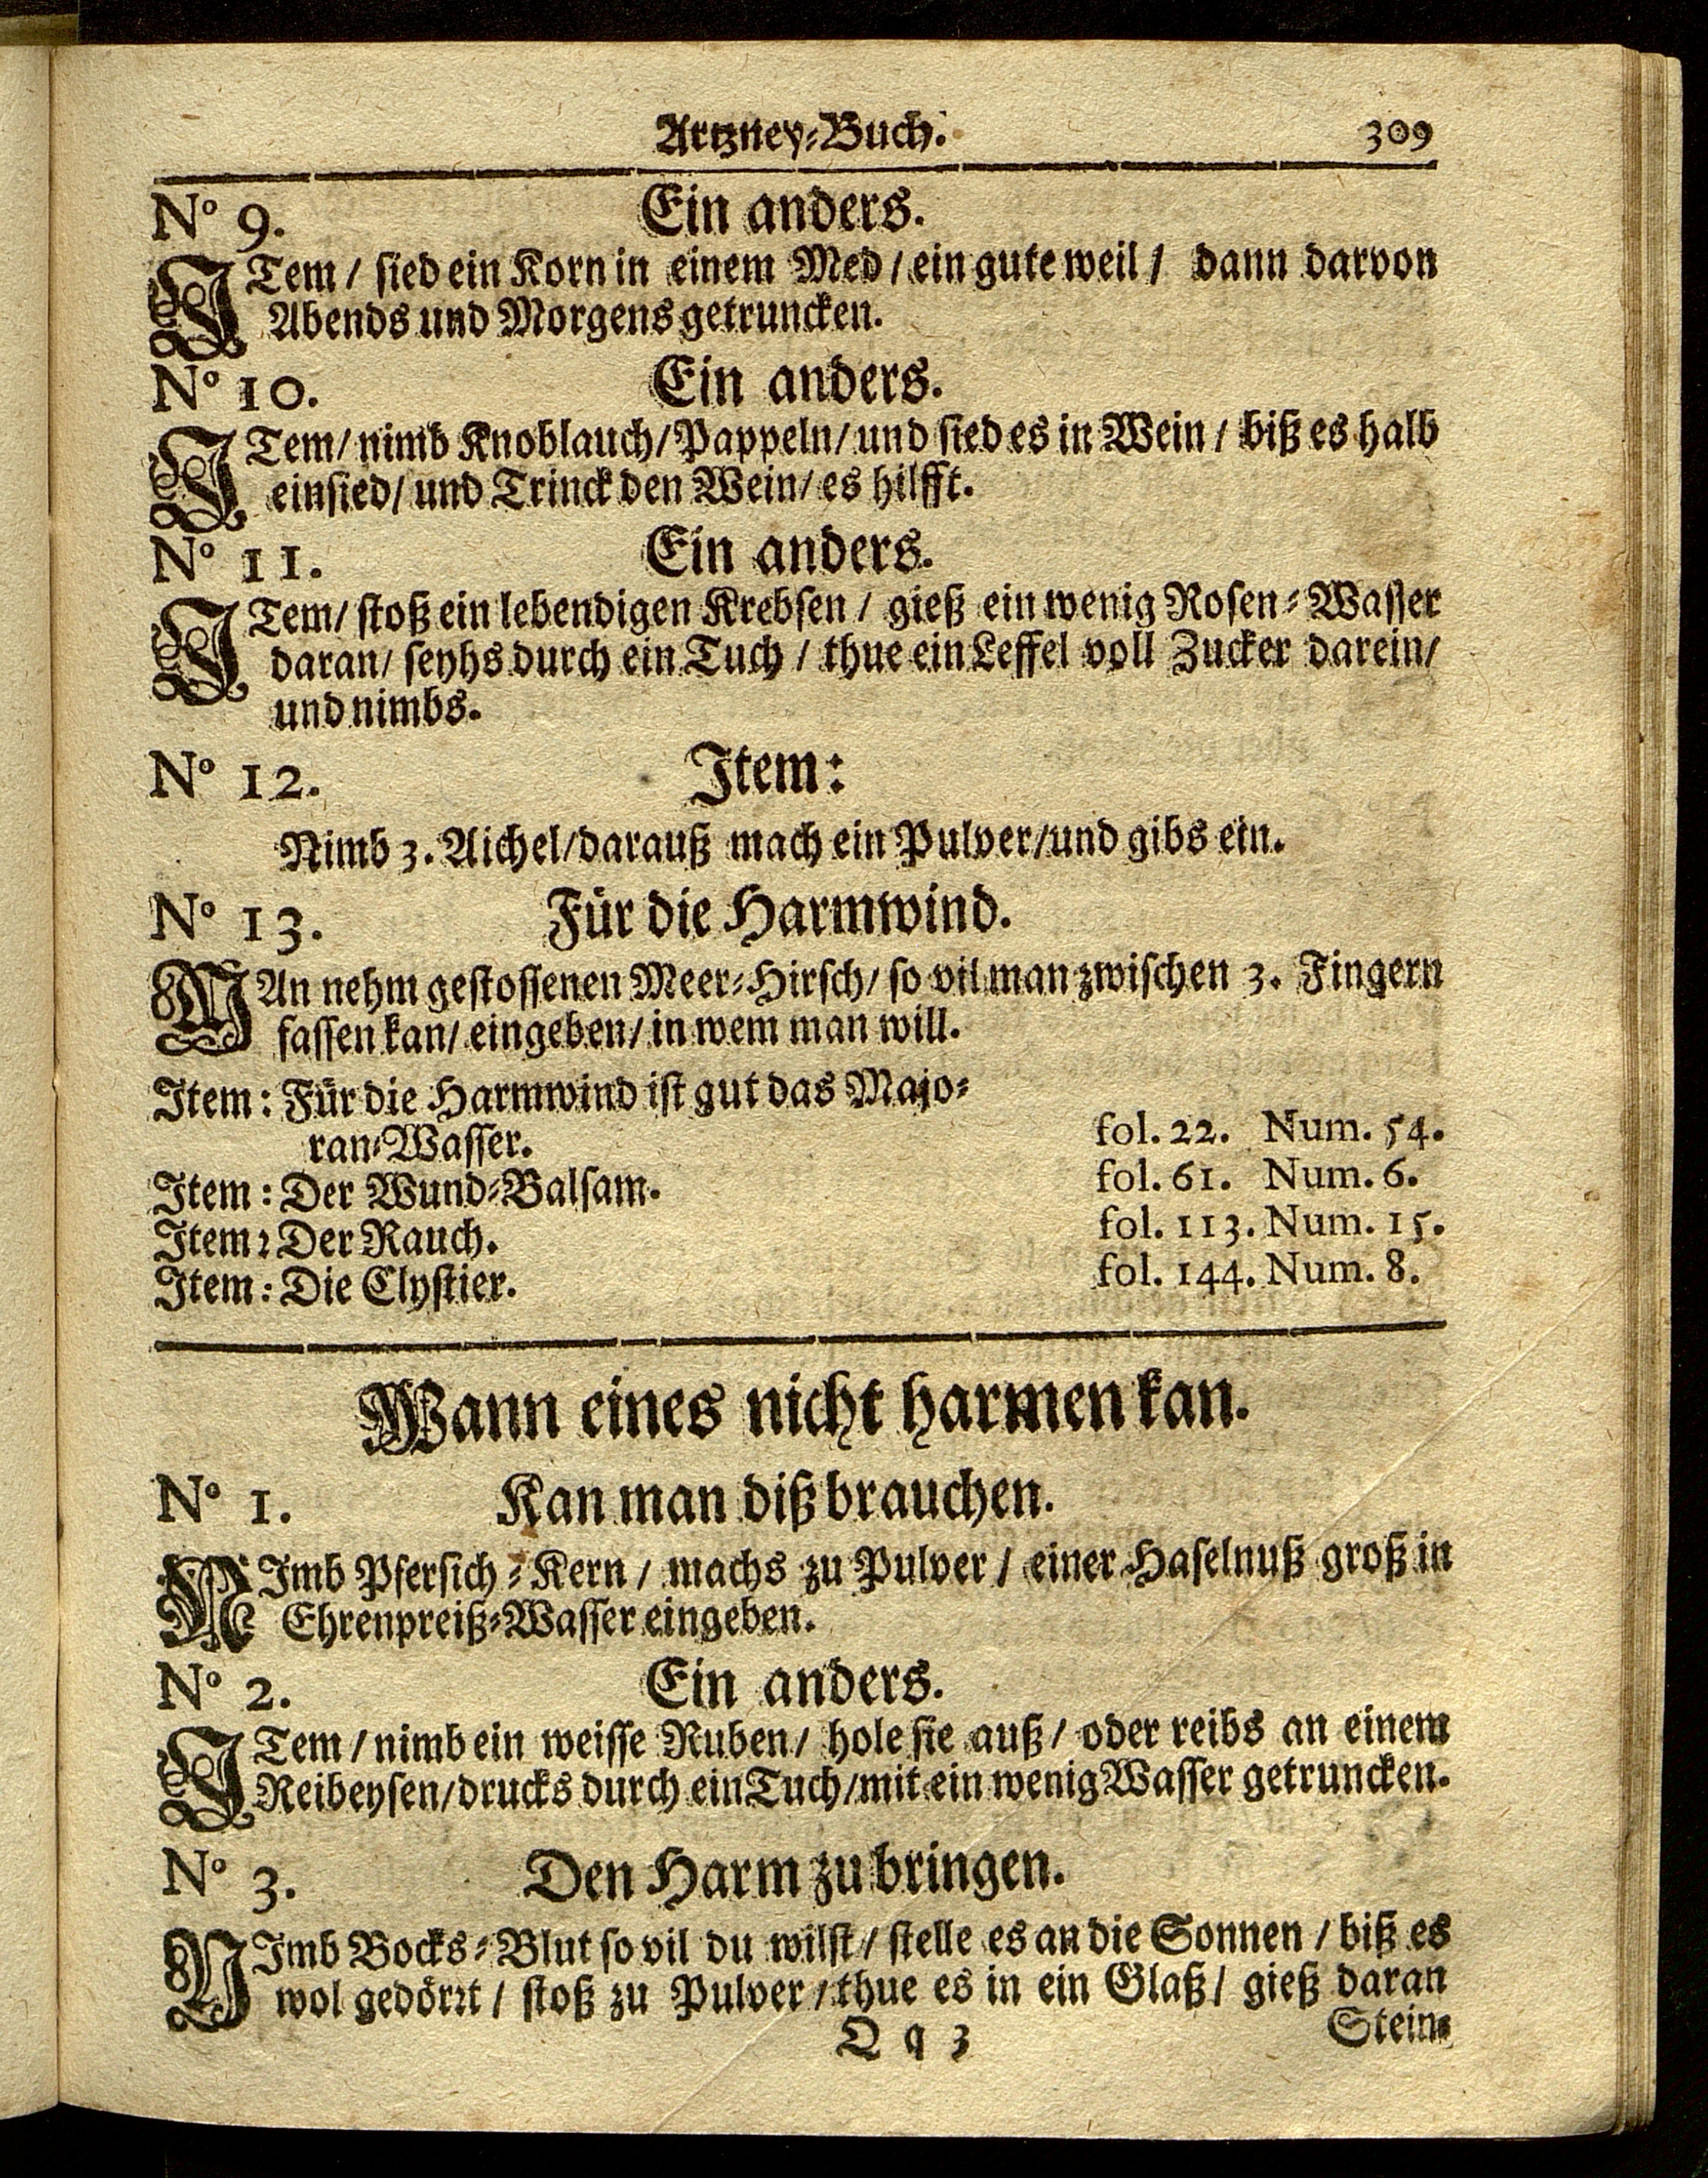 Artzney-Buch. 309
N° 9. Ein anders.
ITem / sied ein Korn in einem Med / ein gute weil / dann darvon
Abends und Morgens getruncken.
N° 10. Ein anders.
ITem / nimb Knoblauch / Pappeln / und sied es in Wein / biß es halb
einsied / und Trinck den Wein / es hilfft.
N° 11. Ein anders.
ITem / stoß ein lebendigen Krebsen / gieß ein wenig Rosen-Wasser
daran / seyhs durch ein Tuch / thue ein Leffel voll Zucker darein /
und nimbs.
N° 12. Item:
Nimb 3. Aichel / darauß mach ein Pulver / und gibs ein.
N° 13. Für die Harmwind.
MAn nehm gestossenen Meer-Hirsch / so vil man zwischen 3. Fingern
fassen kan / eingeben / in wem man will.
Item: Für die Harmwind ist gut das Majo-
ran-Wasser. fol. 22. Num. 54.
Item: Der Wund-Balsam. fol. 61. Num. 6.
Item: Der Rauch. fol. 113. Num. 15.
Item: Die Clystier. fol. 144. Num. 8.
Wann eines nicht harmen kan.
N° 1. Kan man diß brauchen.
NImb Pfersich-Kern / machs zu Pulver / einer Haselnuß groß in
Ehrenpreiß-Wasser eingeben.
N° 2. Ein anders.
ITem / nimb ein weisse Ruben / hole sie auß / oder reibs an einem
Reibeysen / drucks durch ein Tuch / mit ein wenig Wasser getruncken.
N° 3. Den Harm zu bringen.
NImb Bocks-Blut so vil du wilst / stelle es an die Sonnen / biß es
wol gedörrt / stoß zu Pulver / thue es in ein Glaß / gieß daran
Q q 3 Stein-